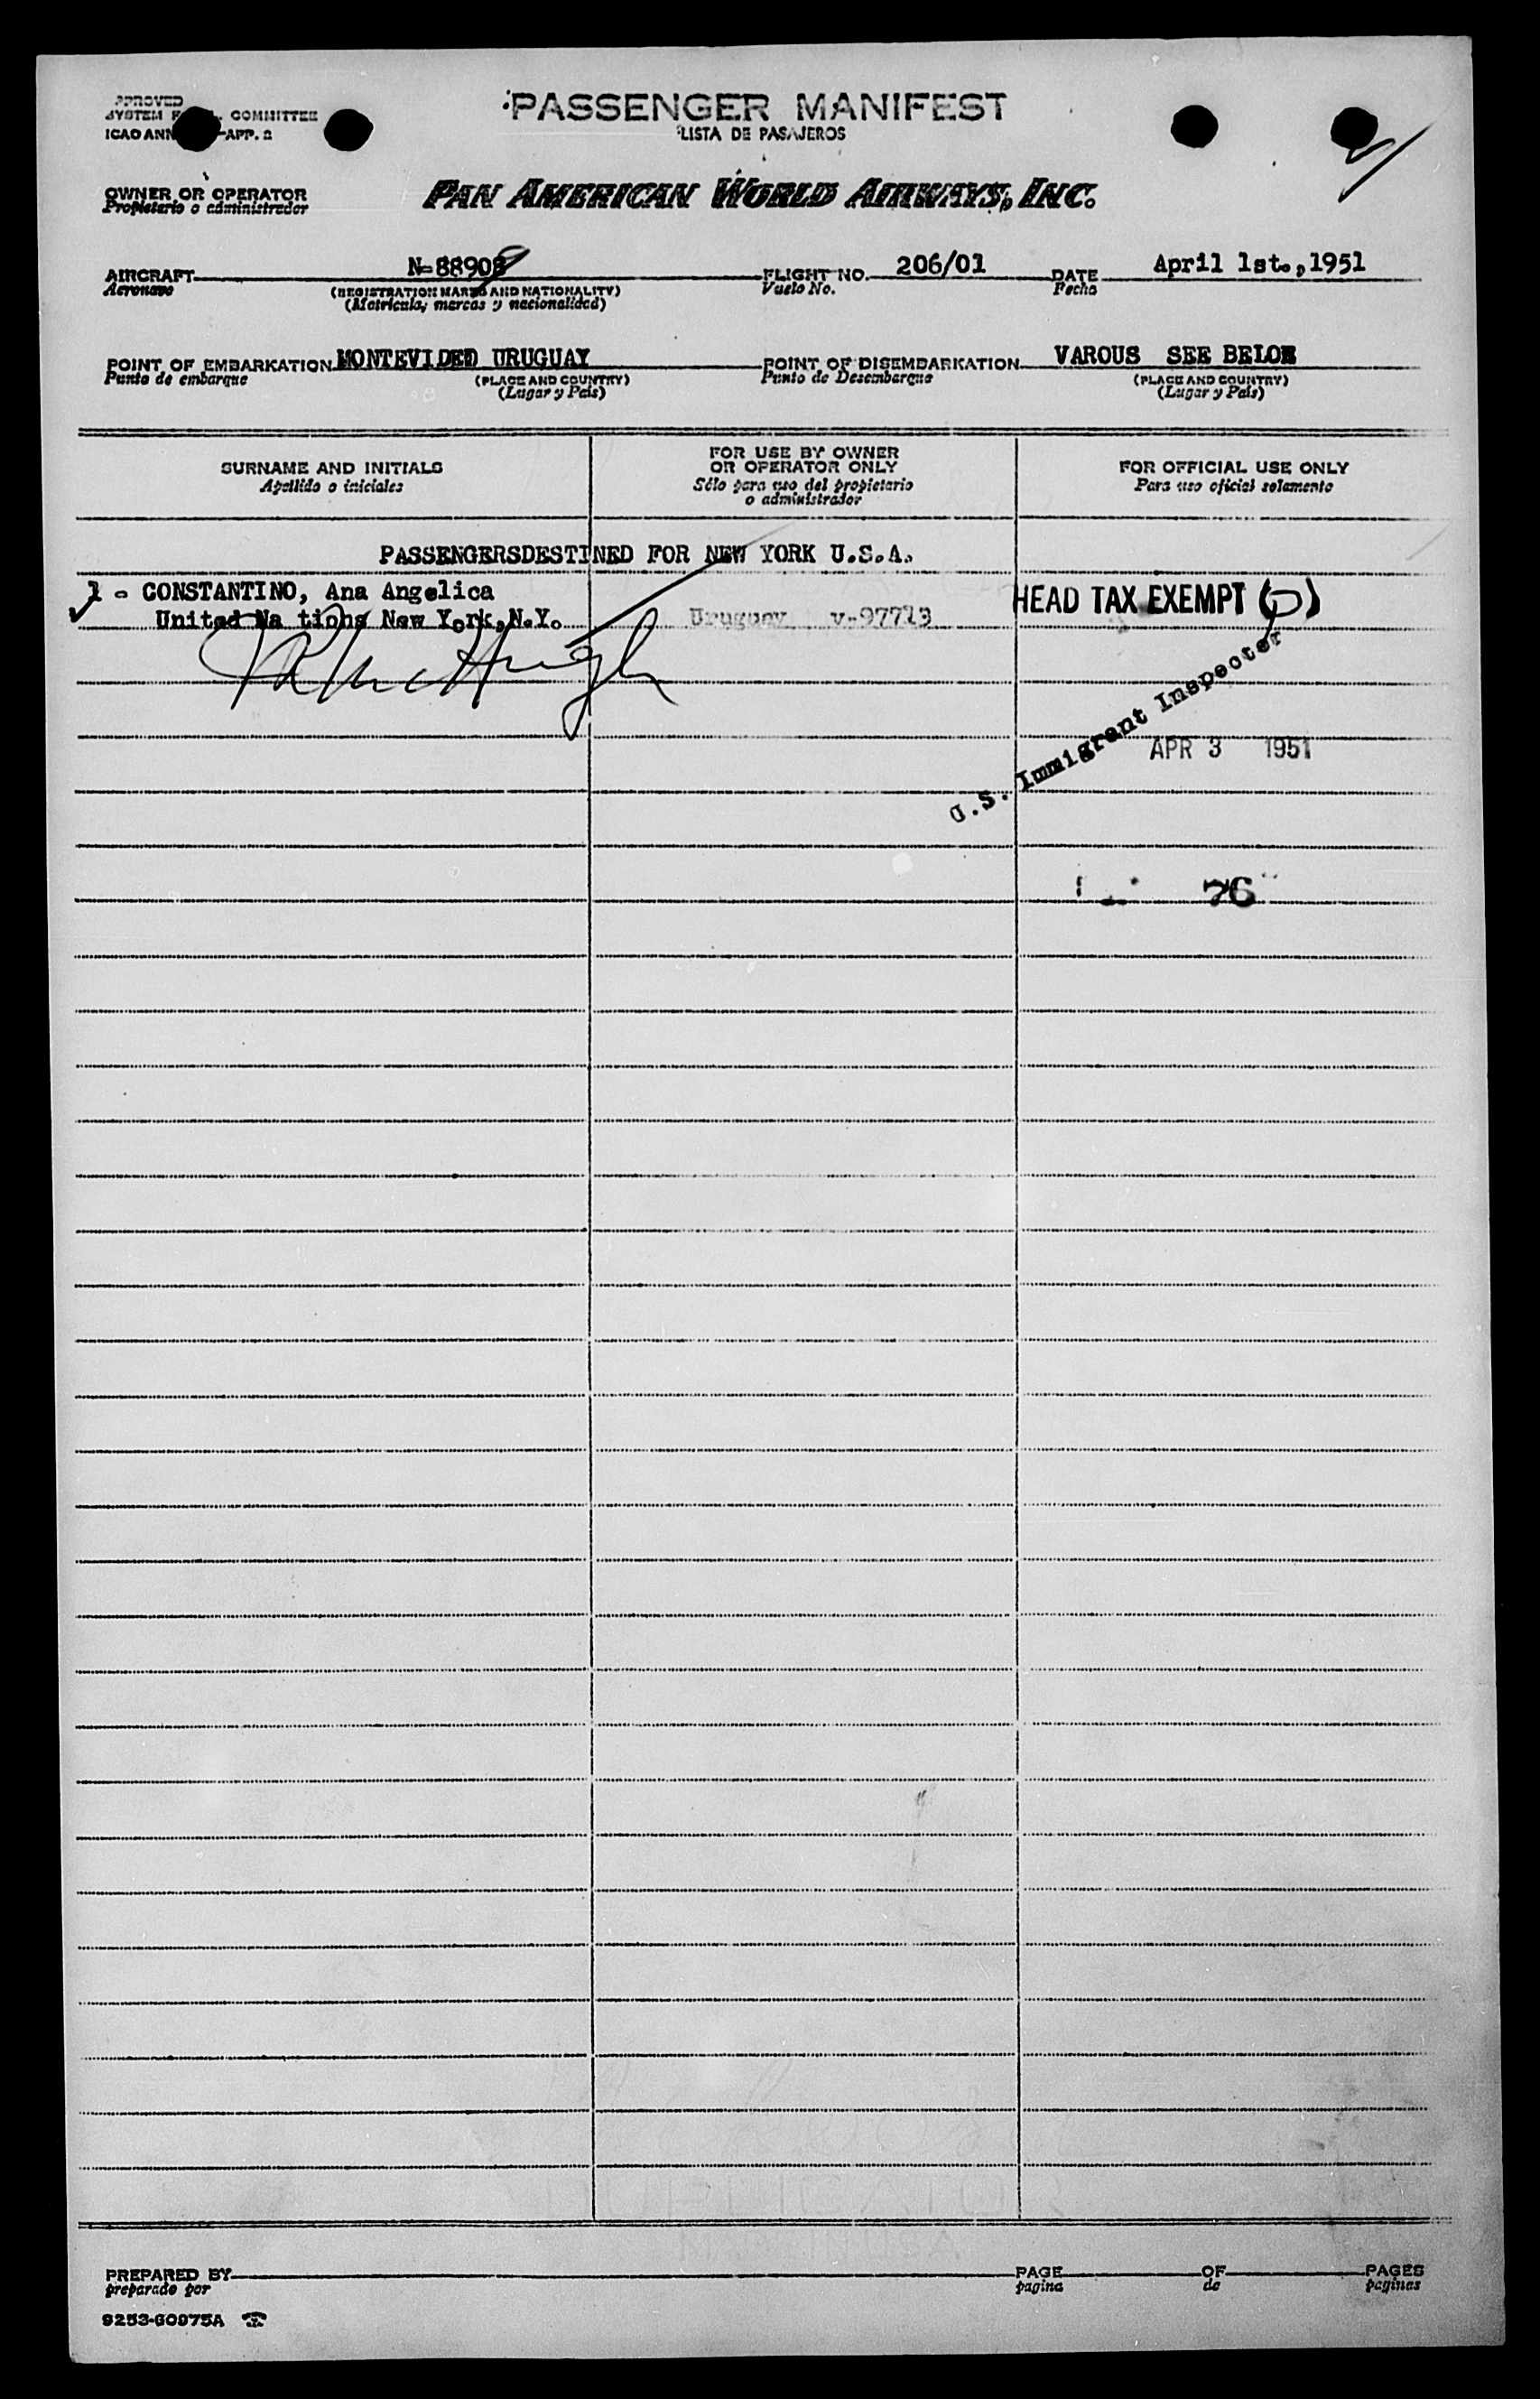 APPROVED
SYSTEM COMMITTEE
ICAO ANN APP. 2
PASSENGER MANIFEST
LISTA DE PASAJEROS
OWNER OR OPERATOR
Propietario o administrador
PAN AMERICAN WORLD AIRWAYS, INC.
AIRCRAFT N-88908 FLIGHT NO. 206/01 DATE April 1st.,1951
Aeronave (REGISTRATION MARKS AND NATIONALITY) Vuelo No. Fecha
(Matricula, marcas y nacionalidad)
POINT OF EMBARKATION MONTEVIDEO URUGUAY POINT OF DISEMBARKATION VAROUS SEE BELOW
Punto de embarque (PLACE AND COUNTRY) Punto de Desembarque (PLACE AND COUNTRY)
(Lugar y País) (Lugar y País)
SURNAME AND INITIALS
Apellido o iniciales
FOR USE BY OWNER
OR OPERATOR ONLY
Sólo para uso del propietario
o administrador
FOR OFFICIAL USE ONLY
Para uso oficial solamente
PASSENGERSDESTINED FOR NEW YORK U.S.A.
1 - CONSTANTINO, Ana Angelica
United Na tions New York,N.Y. Uruguay v-97713
HEAD TAX EXEMPT
U.S. Immigrant Inspector
APR 3 1951
76
PREPARED BY PAGE OF PAGES
preparado por pagina de paginas
9253-60975A